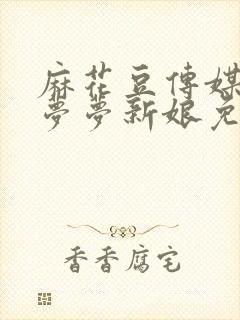 麻花豆傳媒
夢夢新娘免
香香腐宅